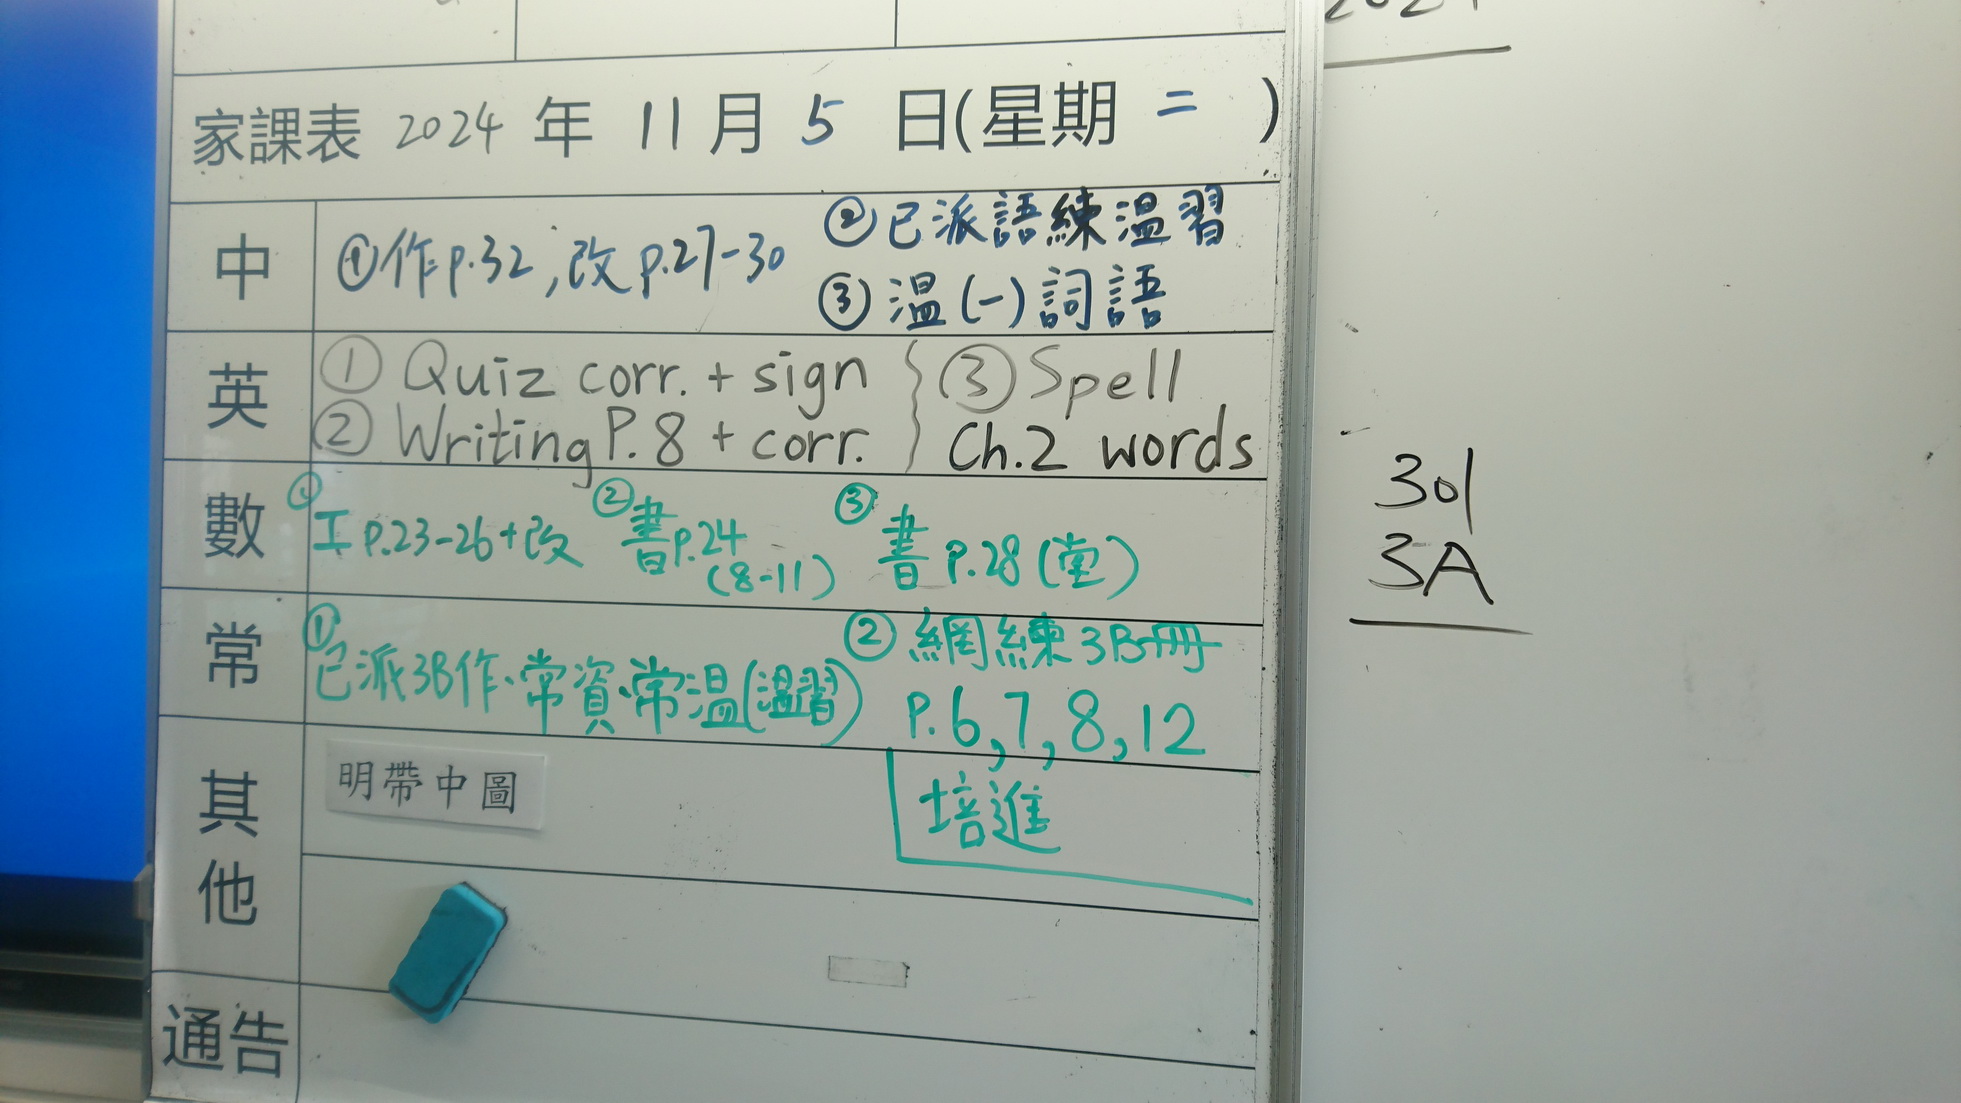 家課表 2024 年 11 月 5 日(星期 二 )
中
①作p.32,改p.27-30
②已派語練溫習
③溫(一)詞語
英
① Quiz corr. + sign
② Writing P.8 + corr.
③ Spell
Ch.2 words
數
①工p.23-26+改
②書p.24
(8-11)
③書p.28(堂)
常
①已派3B作、常資、常溫(溫習)
②網練3B冊
P.6,7,8,12
其他
明帶中圖
培進
通告
301
3A